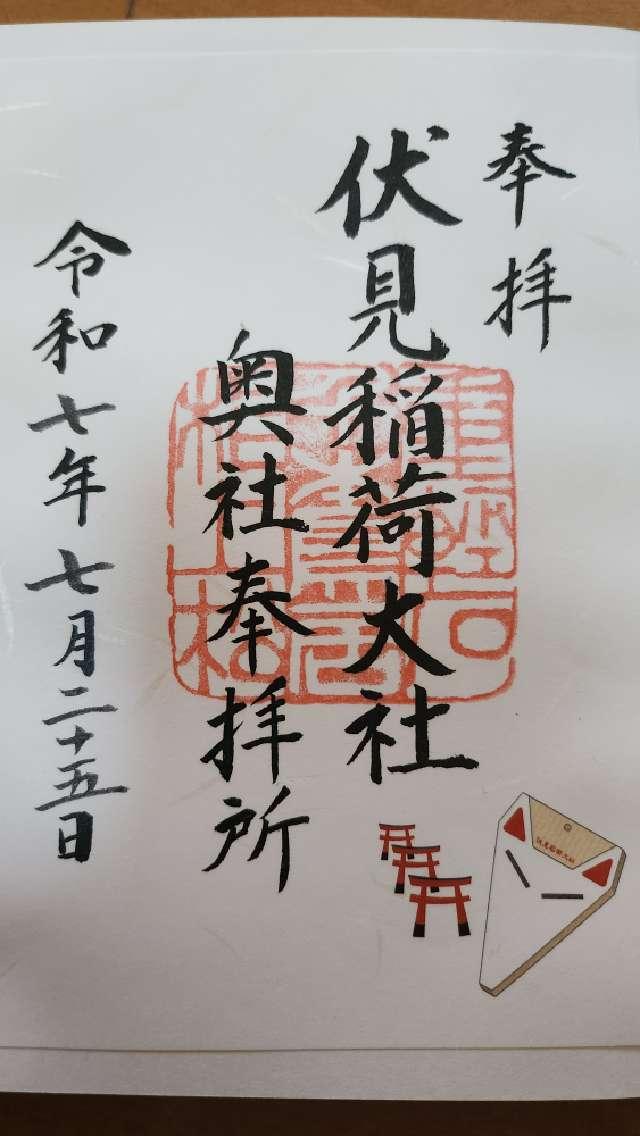 奉拝
伏見稲荷大社
奥社奉拝所
令和七年七月二十五日